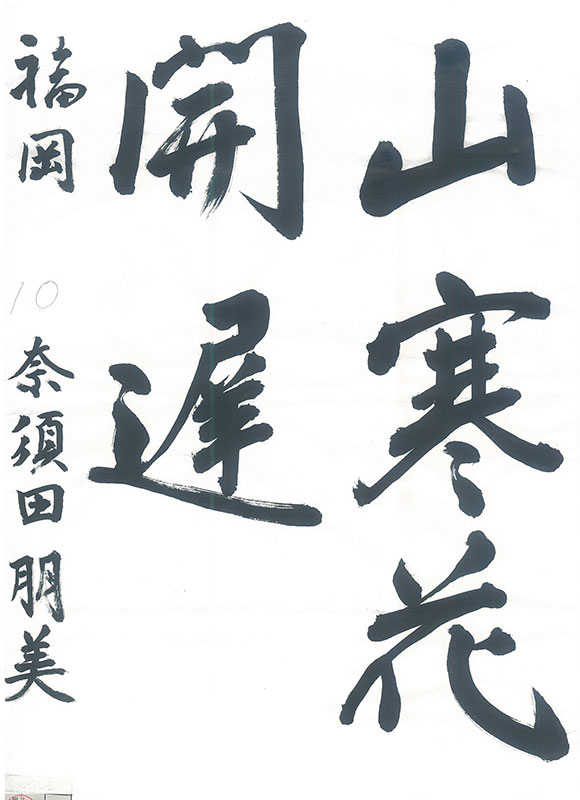 山寒花
開遅
福岡 10 奈須田朋美